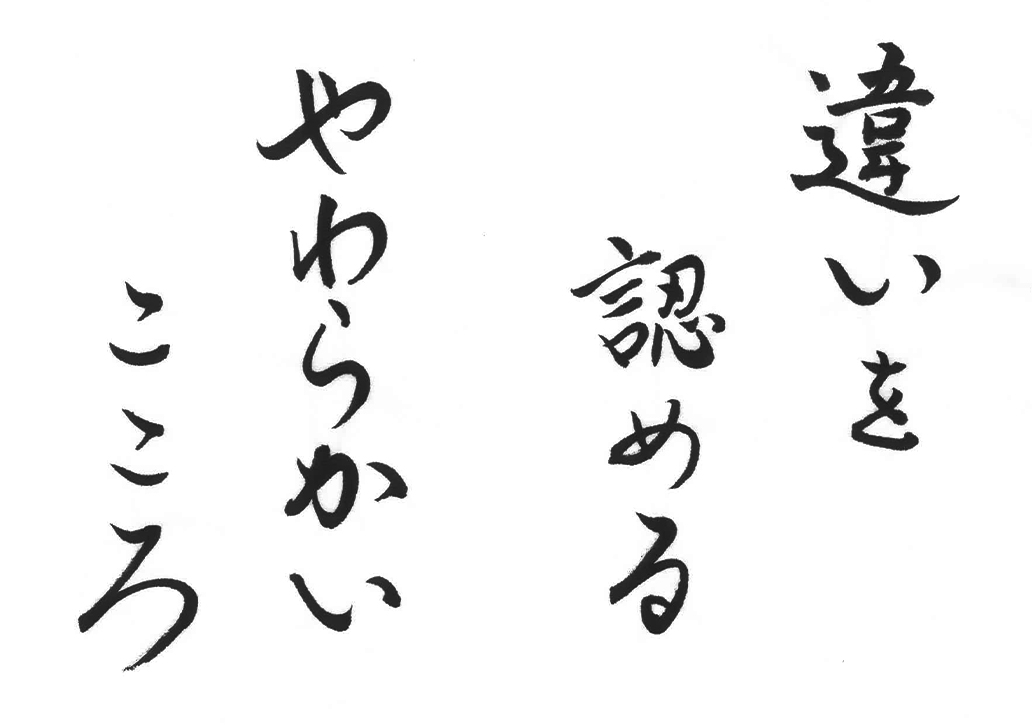 違いを
認める
やわらかい
こころ